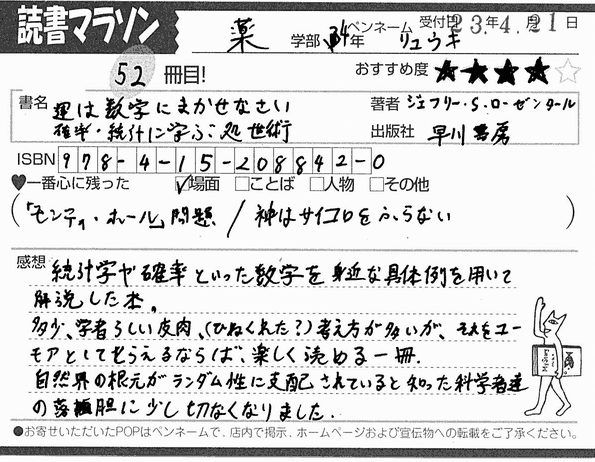 読書マラソン
薬 学部 4年 ペンネーム リュウキ 受付日 23年4月21日
52 冊目! おすすめ度 ★★★★☆
書名 運は数学にまかせなさい 著者 ジェフリー・S・ローゼンタール
確率・統計に学ぶ処世術 出版社 早川書房
ISBN 978-4-15-208842-0
♥一番心に残った ☑場面 □ことば □人物 □その他
(「モンティ・ホール」問題 / 神はサイコロをふらない )
感想 統計学や確率といった数学を身近な具体例を用いて
解説した本。
多少、学者らしい皮肉、(ひねくれた?)考え方が多いが、それをユー
モアとしてもらえるならば、楽しく読める一冊.
自然界の根元がランダム性に支配されていると知った科学者達
の落胆に少し切なくなりました.
●お寄せいただいたPOPはペンネームで、店内で掲示、ホームページおよび宣伝物への転載をご了承ください。